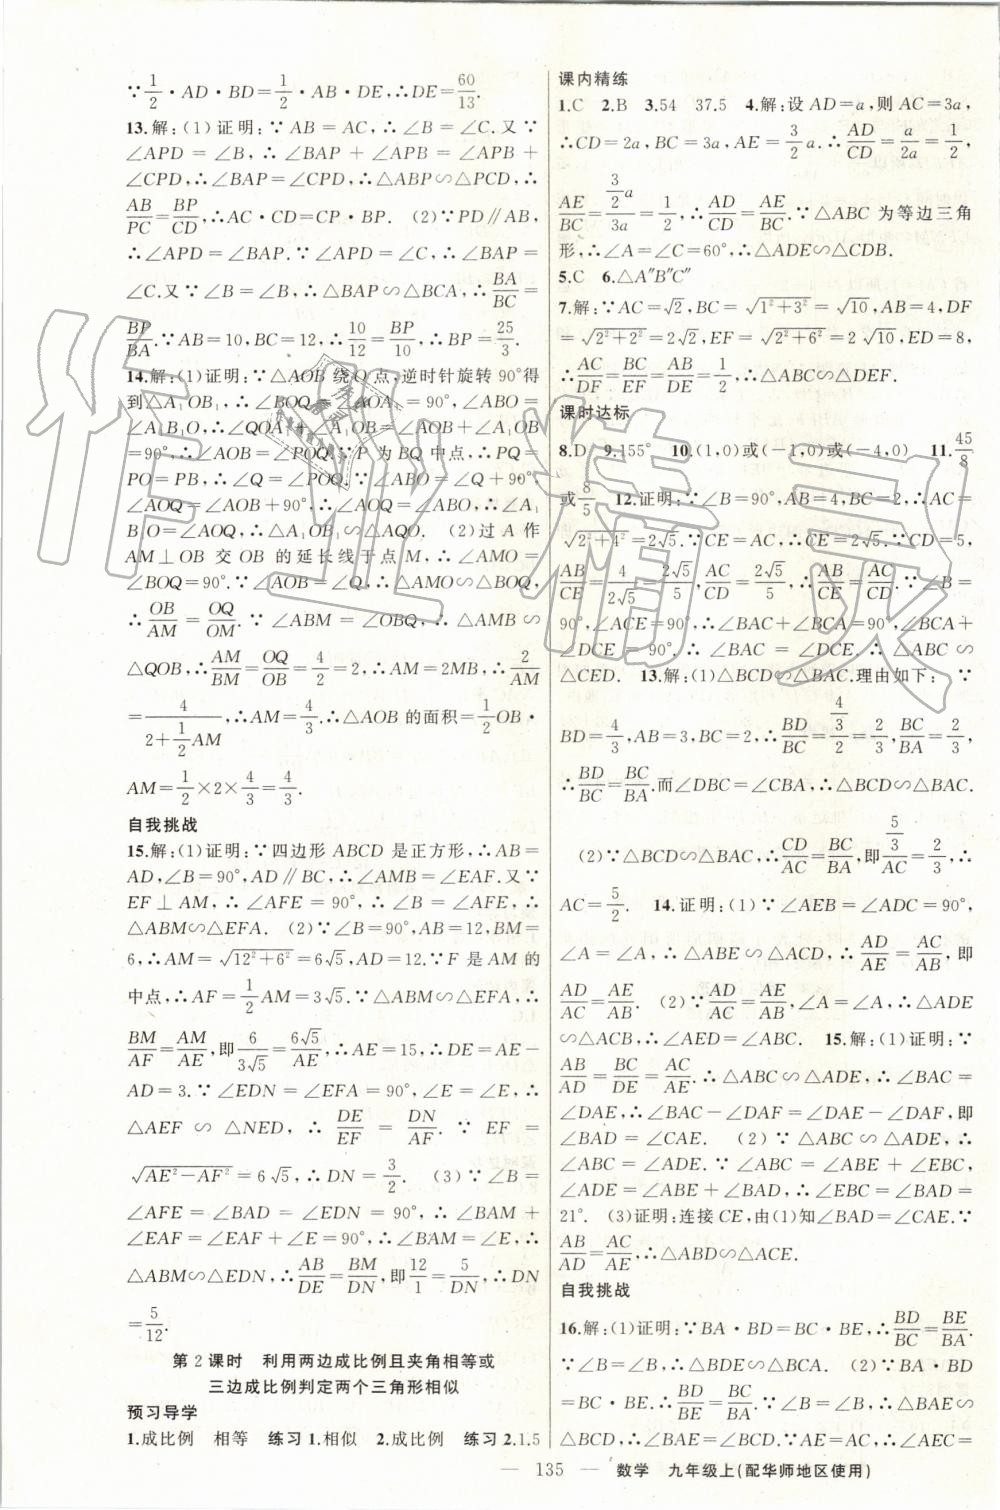 ∵1/2·AD·BD=1/2·AB·DE,∴DE=60/13.
13.解:(1)证明:∵AB=AC,∴∠B=∠C.又∵
∠APD=∠B,∴∠BAP+∠APB=∠APB+
∠CPD,∴∠BAP=∠CPD,∴△ABP∽△PCD,∴
AB/PC=BP/CD,∴AC·CD=CP·BP. (2)∵PD∥AB,
∴∠APD=∠BAP.∵∠APD=∠C,∴∠BAP=
∠C.又∵∠B=∠B,∴△BAP∽△BCA,∴BA/BC=
BP/BA.∵AB=10,BC=12,∴10/12=BP/10,∴BP=25/3.
14.解:(1)证明:∵△AOB绕O点,逆时针旋转90°得
到△A₁OB₁,∴∠BOQ=∠AOA₁=90°,∠ABO=
∠A₁B₁O,∴∠QOA+∠A₁OB=∠AOB+∠A₁OB
=90°,∴∠BOA₁=∠AOQ.∵P为BQ中点,∴PQ=
PO=PB,∴∠Q=∠POQ.∵∠ABO=∠Q+90°,
∠AOQ=∠AOQ+∠POQ=∠Q+90°,∴∠A₁
B₁O=∠AOQ,∴△A₁OB₁∽△AQO. (2)过A作
AM⊥OB交OB的延长线于点M,∴∠AMO=
∠BOQ=90°.∵∠AOB=∠Q,∴△AMO∽△BOQ,
∴OB/AM=OQ/OM.∵∠ABM=∠OBQ,∴△AMB∽
△QOB,∴AM/BM=OQ/OB=4/2=2,∴AM=2MB,∴2/AM
=4/(2+1/2AM),∴AM=4/3.∴△AOB的面积=1/2OB·
AM=1/2×2×4/3=4/3.
自我挑战
15.解:(1)证明:∵四边形ABCD是正方形,∴AB=
AD,∠B=90°,AD∥BC,∴∠AMB=∠EAF.又∵
EF⊥AM,∴∠AFE=90°,∴∠B=∠AFE,∴
△ABM∽△EFA. (2)∵∠B=90°,AB=12,BM=
6,∴AM=√(12²+6²)=6√5,AD=12.∵F是AM的
中点,∴AF=1/2AM=3√5.∵△ABM∽△EFA,∴
BM/AF=AM/AE,即6/(3√5)=6√5/AE,∴AE=15,∴DE=AE-
AD=3.∵∠EDN=∠EFA=90°,∠E=∠E,∴
△AEF∽△NED,∴DE/EF=DN/AF.∵EF=
√(AE²-AF²)=6√5,∴DN=3/2. (3)∵∠B=
∠AFE=∠BAD=∠EDN=90°,∴∠BAM+
∠EAF=∠EAF+∠E=90°,∴∠BAM=∠E,∴
△ABM∽△EDN,∴AB/DE=BM/DN,即12/1=5/DN,∴DN
=5/12.
第2课时 利用两边成比例且夹角相等或
三边成比例判定两个三角形相似
预习导学
1.成比例 相等 练习1.相似 2.成比例 练习2.1.5
课内精练
1.C 2.B 3.54 37.5 4.解:设AD=a,则AC=3a,
∴CD=2a,BC=3a,AE=3/2a.∴AD/CD=a/2a=1/2,
AE/BC=(3/2a)/3a=1/2,∴AD/CD=AE/BC.∵△ABC为等边三角
形,∴∠A=∠C=60°,∴△ADE∽△CDB.
5.C 6.△A″B″C″
7.解:∵AC=√2,BC=√(1²+3²)=√10,AB=4,DF
=√(2²+2²)=2√2,EF=√(2²+6²)=2√10,ED=8,
∴AC/DF=BC/EF=AB/DE=1/2,∴△ABC∽△DEF.
课时达标
8.D 9.155° 10.(1,0)或(-1,0)或(-4,0) 11.45/8
或8/5 12.证明:∵∠B=90°,AB=4,BC=2,∴AC=
√(2²+4²)=2√5.∵CE=AC,∴CE=2√5.∵CD=5,
AB/CE=4/(2√5)=2√5/5,AC/CD=2√5/5,∴AB/CE=AC/CD.∵∠B=
90°,∠ACE=90°,∴∠BAC+∠BCA=90°,∠BCA+
∠DCE=90°,∴∠BAC=∠DCE.∴△ABC∽
△CED. 13.解:(1)△BCD∽△BAC.理由如下:∵
BD=4/3,AB=3,BC=2,∴BD/BC=(4/3)/2=2/3,BC/BA=2/3,
∴BD/BC=BC/BA.而∠DBC=∠CBA,∴△BCD∽△BAC.
(2)∵△BCD∽△BAC,∴CD/AC=BC/BA,即(5/3)/AC=2/3,∴
AC=5/2. 14.证明:(1)∵∠AEB=∠ADC=90°,
∠A=∠A,∴△ABE∽△ACD,∴AD/AE=AC/AB,即
AD/AC=AE/AB. (2)∵AD/AC=AE/AB,∠A=∠A,∴△ADE
∽△ACB,∴∠AED=∠ABC. 15.解:(1)证明:∵
AB/AD=BC/DE=AC/AE.∴△ABC∽△ADE,∴∠BAC=
∠DAE,∴∠BAC-∠DAF=∠DAE-∠DAF,即
∠BAD=∠CAE. (2)∵△ABC∽△ADE,∴
∠ABC=∠ADE.∵∠ABC=∠ABE+∠EBC,
∠ADE=∠ABE+∠BAD,∴∠EBC=∠BAD=
21°. (3)证明:连接CE,由(1)知∠BAD=∠CAE.∵
AB/AD=AC/AE,∴△ABD∽△ACE.
自我挑战
16.解:(1)证明:∵BA·BD=BC·BE,∴BD/BC=BE/BA.
∵∠B=∠B,∴△BDE∽△BCA. (2)∵BA·BD
=BC·BE,∴BD/BE=BC/BA.∵∠B=∠B,∴△BAE∽
△BCD,∴AE/CD=AB/BC.∵AB=AC,∴∠AEC=
— 135 — 数学 九年级上(配华师地区使用)
作业精灵